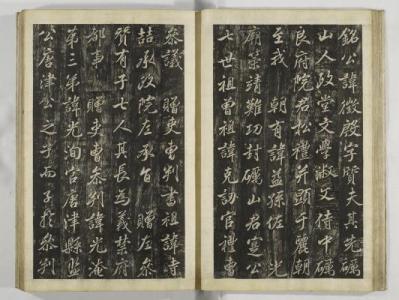 銘公諱徵殷字質夫其先礪
山人政堂文學淑文侍中礪
良府院君松禮並顯于麗朝
至我 朝有諱益孫佐 光
廟策靖難功封礪山君寔公
七世祖曾祖諱克訒官禮曹
參議 贈吏曹判書祖諱時
喆承政院左承旨 贈左參
贊有子七人其長為義禁府
都事 贈吏曹參判諱光淹
第三弟諱光洵官唐津縣監
公唐津公之子而子於參判